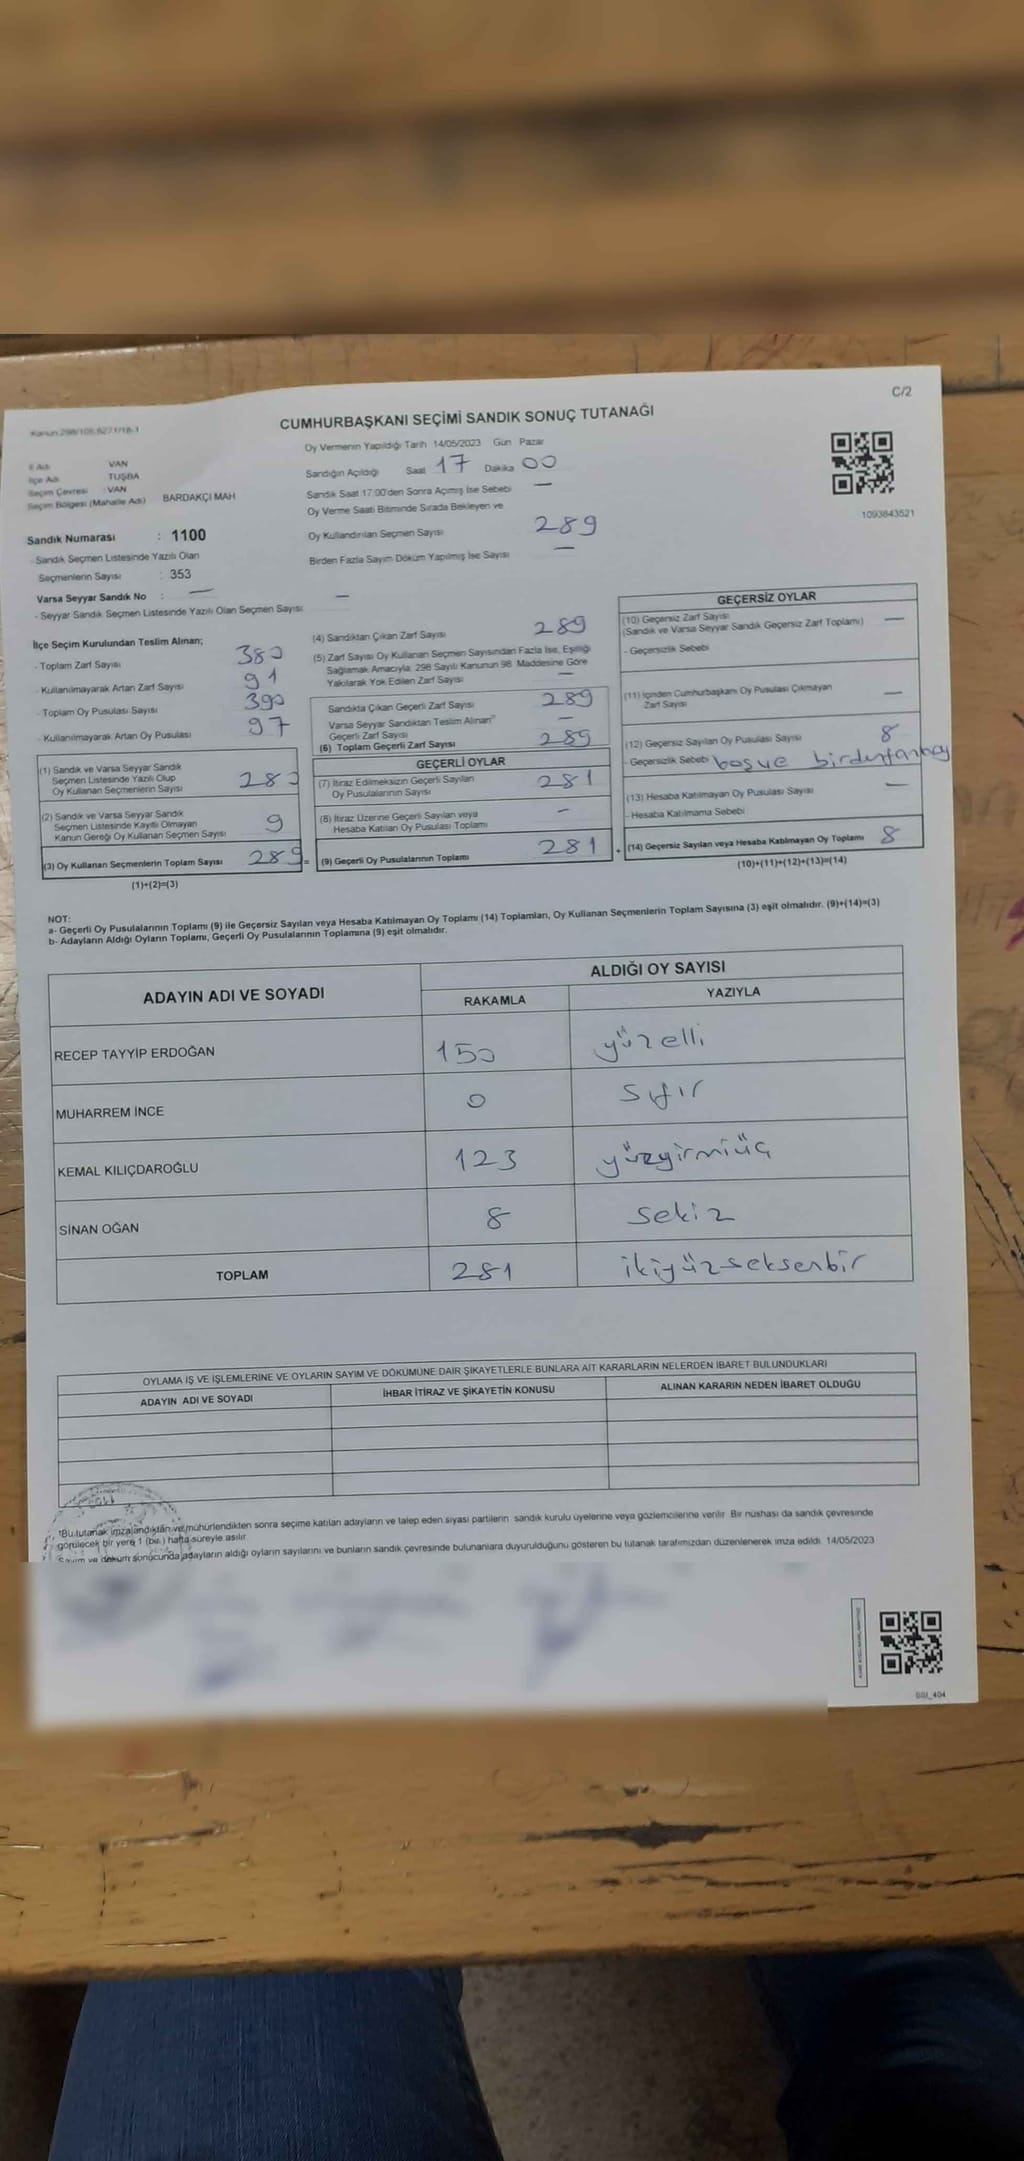 Kanun:298/105,6271/18-1
C/2
CUMHURBAŞKANI SEÇİMİ SANDIK SONUÇ TUTANAĞI
Oy Vermenin Yapıldığı Tarih 14/05/2023 Gün Pazar
İl Adı VAN
İlçe Adı TUŞBA
Seçim Çevresi : VAN
Seçim Bölgesi (Mahalle Adı) BARDAKÇI MAH
Sandığın Açıldığı Saat 17 Dakika 00
Sandık Saat 17:00'den Sonra Açılmış İse Sebebi —
Oy Verme Saati Bitiminde Sırada Bekleyen ve
Oy Kullandırılan Seçmen Sayısı 289
Birden Fazla Sayım Döküm Yapılmış İse Sayısı —
1093843521
Sandık Numarası : 1100
- Sandık Seçmen Listesinde Yazılı Olan
Seçmenlerin Sayısı : 353
Varsa Seyyar Sandık No : —
- Seyyar Sandık Seçmen Listesinde Yazılı Olan Seçmen Sayısı —
İlçe Seçim Kurulundan Teslim Alınan;
- Toplam Zarf Sayısı 380
- Kullanılmayarak Artan Zarf Sayısı 91
- Toplam Oy Pusulası Sayısı 390
- Kullanılmayarak Artan Oy Pusulası 97
(1) Sandık ve Varsa Seyyar Sandık
Seçmen Listesinde Yazılı Olup
Oy Kullanan Seçmenlerin Sayısı 280
(2) Sandık ve Varsa Seyyar Sandık
Seçmen Listesinde Kayıtlı Olmayan
Kanun Gereği Oy Kullanan Seçmen Sayısı 9
(3) Oy Kullanan Seçmenlerin Toplam Sayısı 289=
(1)+(2)=(3)
(4) Sandıktan Çıkan Zarf Sayısı 289
(5) Zarf Sayısı Oy Kullanan Seçmen Sayısından Fazla İse, Eşitliği
Sağlamak Amacıyla, 298 Sayılı Kanunun 98. Maddesine Göre
Yakılarak Yok Edilen Zarf Sayısı —
Sandıkta Çıkan Geçerli Zarf Sayısı 289
Varsa Seyyar Sandıktan Teslim Alınan
Geçerli Zarf Sayısı —
(6) Toplam Geçerli Zarf Sayısı 289
GEÇERLİ OYLAR
(7) İtiraz Edilmeksizin Geçerli Sayılan
Oy Pusulalarının Sayısı 281
(8) İtiraz Üzerine Geçerli Sayılan veya
Hesaba Katılan Oy Pusulası Toplamı —
(9) Geçerli Oy Pusulalarının Toplamı 281 +
GEÇERSİZ OYLAR
(10) Geçersiz Zarf Sayısı
(Sandık ve Varsa Seyyar Sandık Geçersiz Zarf Toplamı) —
- Geçersizlik Sebebi
(11) İçinden Cumhurbaşkanı Oy Pusulası Çıkmayan
Zarf Sayısı —
(12) Geçersiz Sayılan Oy Pusulası Sayısı 8
- Geçersizlik Sebebi boş ve
(13) Hesaba Katılmayan Oy Pusulası Sayısı —
- Hesaba Katılmama Sebebi
(14) Geçersiz Sayılan veya Hesaba Katılmayan Oy Toplamı 8
(10)+(11)+(12)+(13)=(14)
NOT:
a- Geçerli Oy Pusulalarının Toplamı (9) ile Geçersiz Sayılan veya Hesaba Katılmayan Oy Toplamı (14) Toplamları, Oy Kullanan Seçmenlerin Toplam Sayısına (3) eşit olmalıdır. (9)+(14)=(3)
b- Adayların Aldığı Oyların Toplamı, Geçerli Oy Pusulalarının Toplamına (9) eşit olmalıdır.
ADAYIN ADI VE SOYADI
ALDIĞI OY SAYISI
RAKAMLA YAZIYLA
RECEP TAYYİP ERDOĞAN 150 yüzelli
MUHARREM İNCE 0 sıfır
KEMAL KILIÇDAROĞLU 123 yüzyirmiüç
SİNAN OĞAN 8 sekiz
TOPLAM 281 ikiyüzseksenbir
OYLAMA İŞ VE İŞLEMLERİNE VE OYLARIN SAYIM VE DÖKÜMÜNE DAİR ŞİKAYETLERLE BUNLARA AİT KARARLARIN NELERDEN İBARET BULUNDUKLARI
ADAYIN ADI VE SOYADI İHBAR İTİRAZ VE ŞİKAYETİN KONUSU ALINAN KARARIN NEDEN İBARET OLDUĞU
*Bu tutanak imzalandıktan ve mühürlendikten sonra seçime katılan adayların ve talep eden siyasi partilerin sandık kurulu üyelerine veya gözlemcilerine verilir. Bir nüshası da sandık çevresinde
görülecek bir yere 1 (bir ) hafta süreyle asılır.
Sayım ve döküm sonucunda adayların aldığı oyların sayılarını ve bunların sandık çevresinde bulunanlara duyurulduğunu gösteren bu tutanak tarafımızdan düzenlenerek imza edildi. 14/05/2023